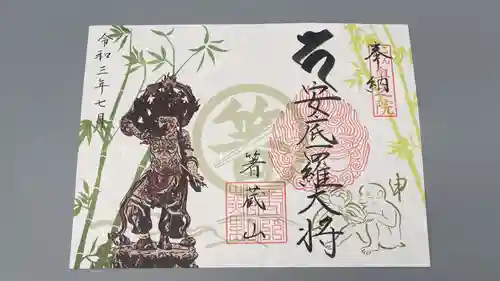 奉納
安底羅大将
申
箸
箸蔵山
令和三年七月